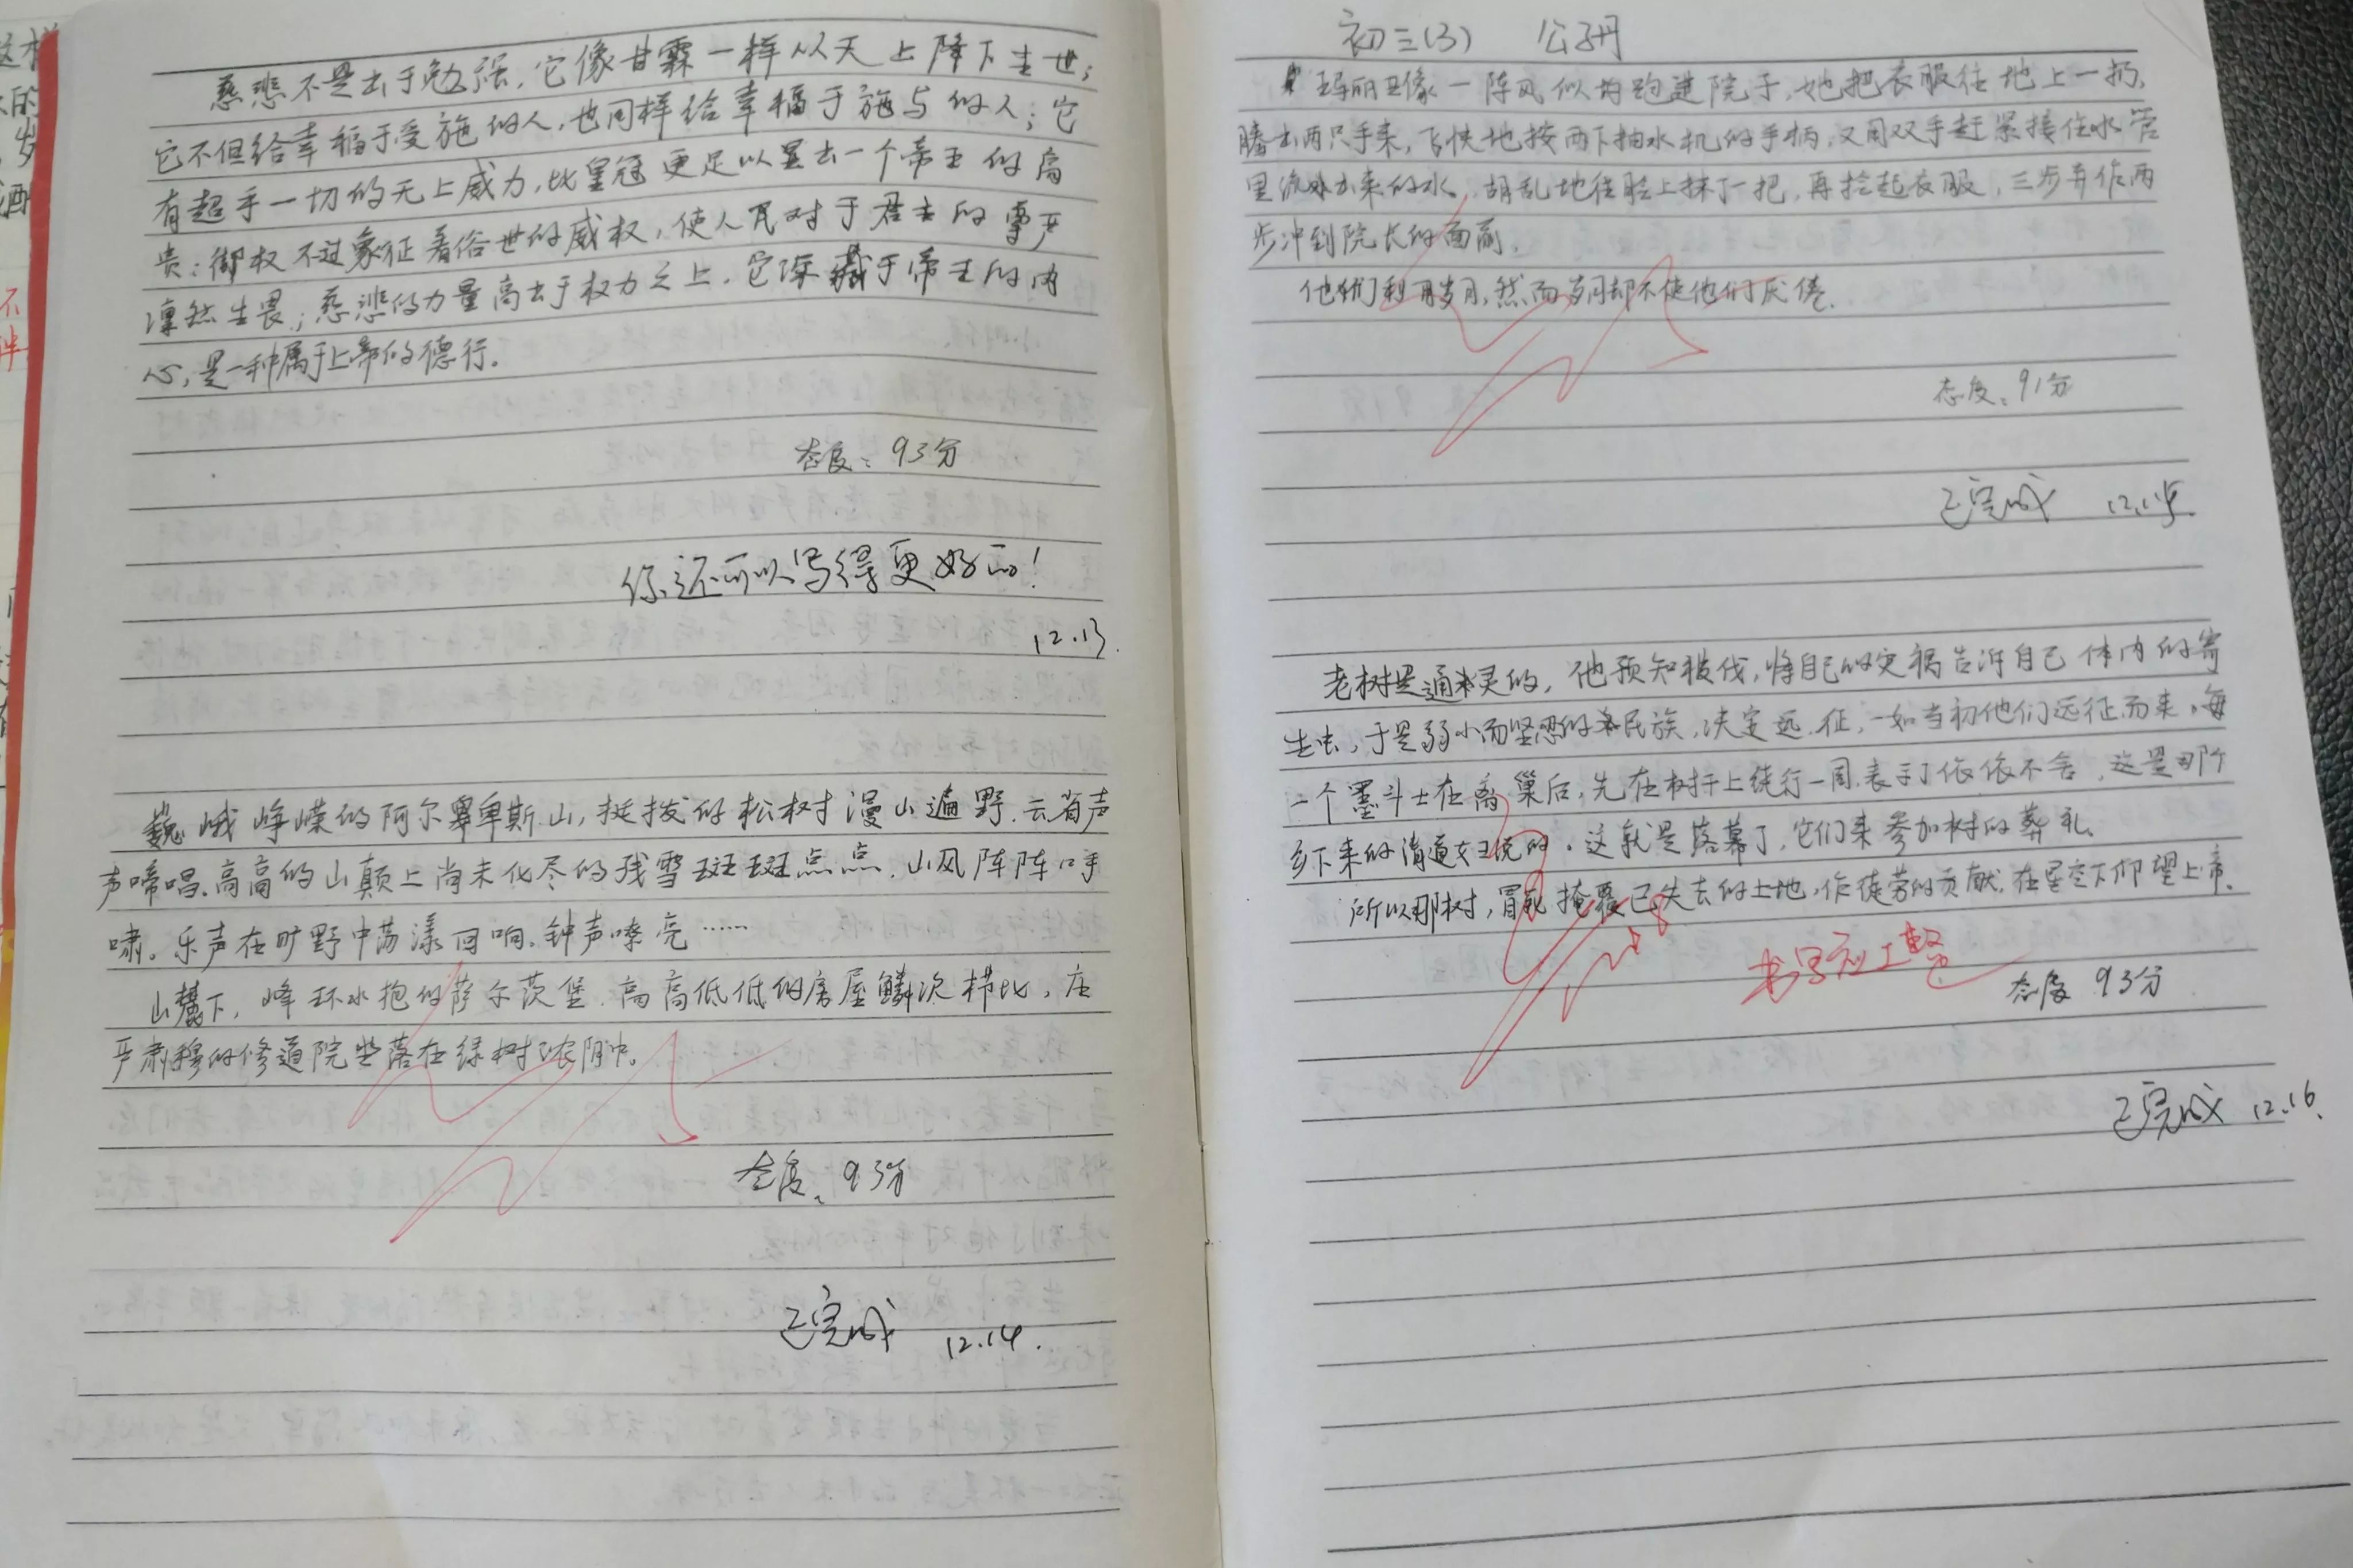 慈悲不是出于勉强，它像甘霖一样从天上降下尘世；
它不但给幸福于受施的人，也同样给幸福于施与的人；它
有超乎一切的无上威力，比皇冠更足以显出一个帝王的高
贵：御权不过象征着俗世的威权，使人民对于君主的尊严
凛然生畏；慈悲的力量高出于权力之上，它深藏于帝王的内
心，是一种属于上帝的德行。
态度：93分
你还可以写得更好的！
12.13
巍峨峥嵘的阿尔卑斯山，挺拔的松树漫山遍野，云雀声
声啼唱，高高的山颠上尚未化尽的残雪斑斑点点，山风阵阵呼
啸。乐声在旷野中荡漾回响，钟声嘹亮……
山麓下，峰环水抱的萨尔茨堡，高高低低的房屋鳞次栉比，庄
严肃穆的修道院坐落在绿树浓阴中。
态度：93分
已完成 12.14.
初三(3)
玛丽亚像一阵风似的跑进院子，她把衣服往地上一扔，
腾出两只手来，飞快地按两下抽水机的手柄，又用双手赶紧接住水管
里流出来的水，胡乱地往脸上抹了一把，再捡起衣服，三步并作两
步冲到院长的面前。
他们利用岁月，然而岁月却不使他们厌倦。
态度：91分
已完成 12.15.
老树是通灵的，他预知被伐，将自己的灾祸告诉自己体内的寄
生虫，于是弱小而坚忍的民族，决定远征，一如当初他们远征而来，每
一个黑斗士在离巢后，先在树干上绕行一周，表示了依依不舍，这是那个
乡下来的清道女工说的。这就是落幕了，它们来参加树的葬礼。
所以那树，冒死掩覆已失去的土地，作徒劳的贡献，在星空下仰望上帝。
书写应工整
态度 93分
已完成 12.16.